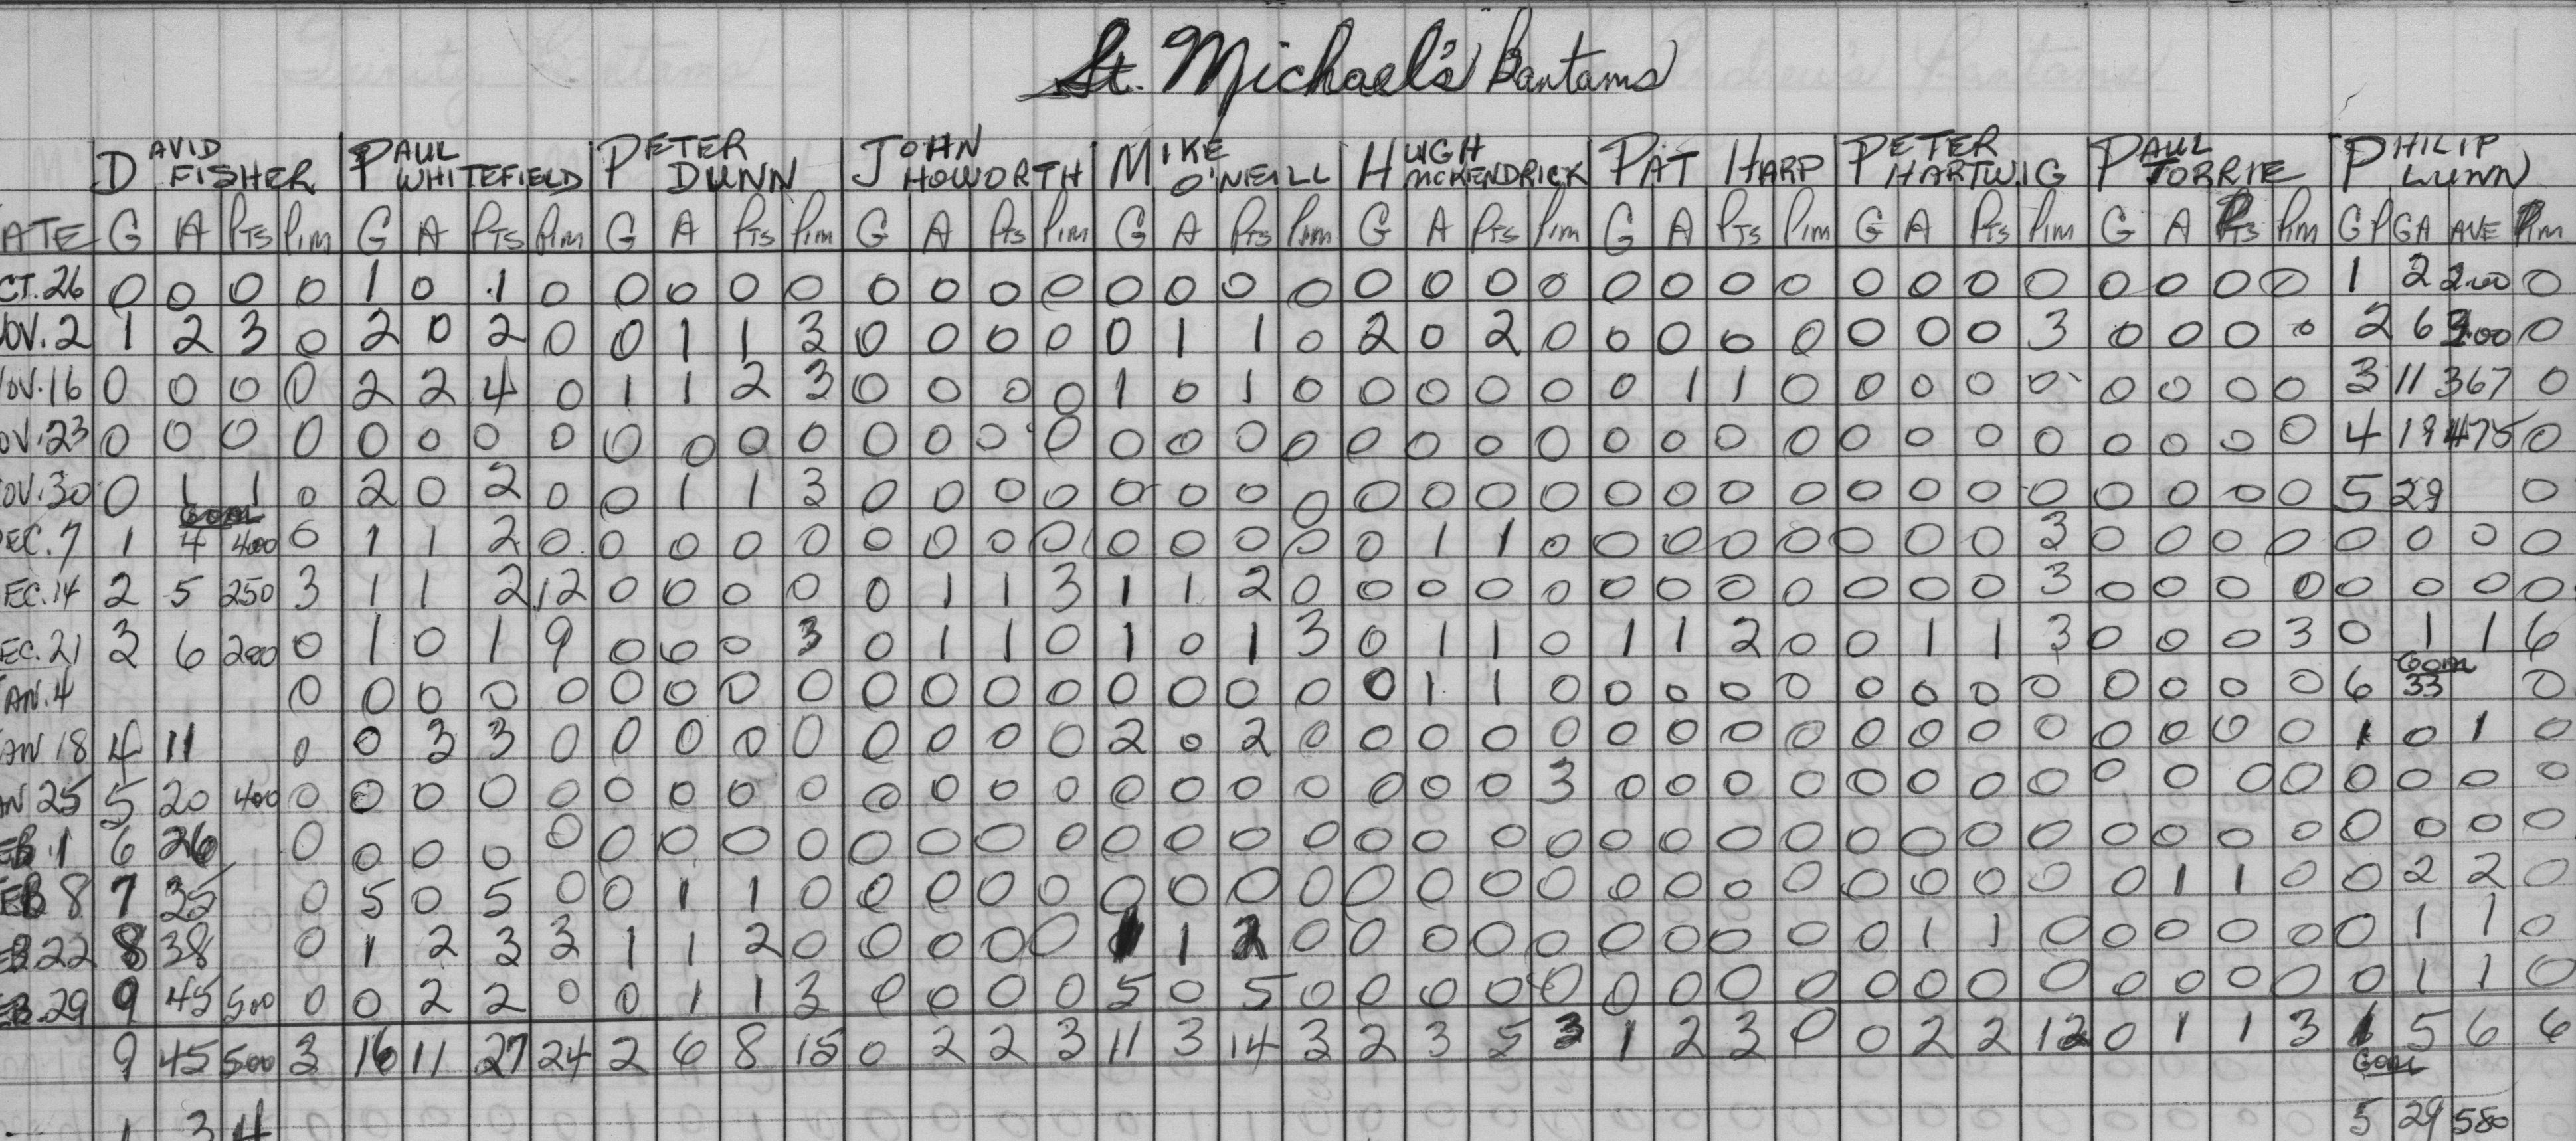 St. Michael's Bantams
DAVID FISHER PAUL WHITEFIELD PETER DUNN JOHN HOWORTH MIKE O'NEILL HUGH MCKENDRICK PAT HARP PETER HARTWIG PAUL TORRIE PHILIP LUNN
ATE G A PTS PIM G A PTS PIM G A PTS PIM G A PTS PIM G A PTS PIM G A PTS PIM G A PTS PIM G A PTS PIM G A PTS PIM GP GA AVE PIM
CT.26 0 0 0 0 1 0 1 0 0 0 0 0 0 0 0 0 0 0 0 0 0 0 0 0 0 0 0 0 0 0 0 0 0 0 0 0 1 2 2.00 0
OV.2 1 2 3 0 2 0 2 0 0 1 1 3 0 0 0 0 0 1 1 0 2 0 2 0 0 0 0 0 0 0 0 3 0 0 0 0 2 6 3.00 0
OV.16 0 0 0 0 2 2 4 0 1 1 2 3 0 0 0 0 1 0 1 0 0 0 0 0 0 1 1 0 0 0 0 0 0 0 0 0 3 11 367 0
OV.23 0 0 0 0 0 0 0 0 0 0 0 0 0 0 0 0 0 0 0 0 0 0 0 0 0 0 0 0 0 0 0 0 0 0 0 0 4 19 475 0
OV.30 0 1 1 0 2 0 2 0 0 1 1 3 0 0 0 0 0 0 0 0 0 0 0 0 0 0 0 0 0 0 0 0 0 0 0 0 5 29 0
Goal
EC.7 1 4 400 0 1 1 2 0 0 0 0 0 0 0 0 0 0 0 0 0 0 1 1 0 0 0 0 0 0 0 0 3 0 0 0 0 0 0 0 0
EC.14 2 5 250 3 1 1 2 12 0 0 0 0 0 1 1 3 1 1 2 0 0 0 0 0 0 0 0 0 0 0 0 3 0 0 0 0 0 0 0 0
EC.21 3 6 200 0 1 0 1 9 0 0 0 3 0 1 1 0 1 0 1 3 0 1 1 0 1 1 2 0 0 1 1 3 0 0 0 3 0 1 1 6
Goal
AN.4 0 0 0 0 0 0 0 0 0 0 0 0 0 0 0 0 0 0 1 1 0 0 0 0 0 0 0 0 0 0 0 0 0 6 33 0
AN 18 4 11 0 0 3 3 0 0 0 0 0 0 0 0 0 2 0 2 0 0 0 0 0 0 0 0 0 0 0 0 0 0 0 0 0 1 0 1 0
AN 25 5 20 400 0 0 0 0 0 0 0 0 0 0 0 0 0 0 0 0 0 0 0 0 3 0 0 0 0 0 0 0 0 0 0 0 0 0 0 0 0
EB.1 6 26 0 0 0 0 0 0 0 0 0 0 0 0 0 0 0 0 0 0 0 0 0 0 0 0 0 0 0 0 0 0 0 0 0 0 0 0 0
EB 8 7 35 0 5 0 5 0 0 1 1 0 0 0 0 0 0 0 0 0 0 0 0 0 0 0 0 0 0 0 0 0 0 1 1 0 0 2 2 0
EB 22 8 38 0 1 2 3 3 1 1 2 0 0 0 0 0 1 1 2 0 0 0 0 0 0 0 0 0 0 1 1 0 0 0 0 0 0 1 1 0
EB.29 9 45 500 0 0 2 2 0 0 1 1 3 0 0 0 0 5 0 5 0 0 0 0 0 0 0 0 0 0 0 0 0 0 0 0 0 0 1 1 0
9 45 500 3 16 11 27 24 2 6 8 15 0 2 2 3 11 3 14 3 2 3 5 3 1 2 3 0 0 2 2 12 0 1 1 3 1 5 6 6
Goal
1 3 4 5 29 580